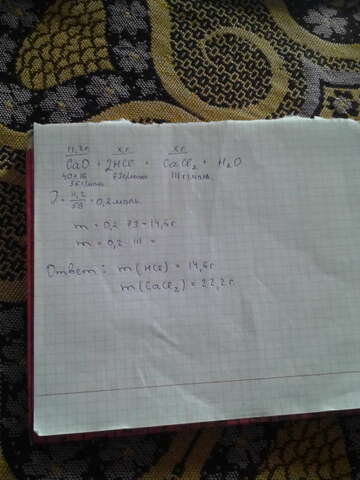 11,2г. х г. х г.
CaO + 2HCl = CaCl₂ + H₂O
40+16 73г/моль 111г/моль
56г/моль
ν = 11,2/56 = 0,2 моль.
m = 0,2 · 73 = 14,6 г.
m = 0,2 · 111 =
Ответ: m(HCl) = 14,6г
m(CaCl₂) = 22,2г.